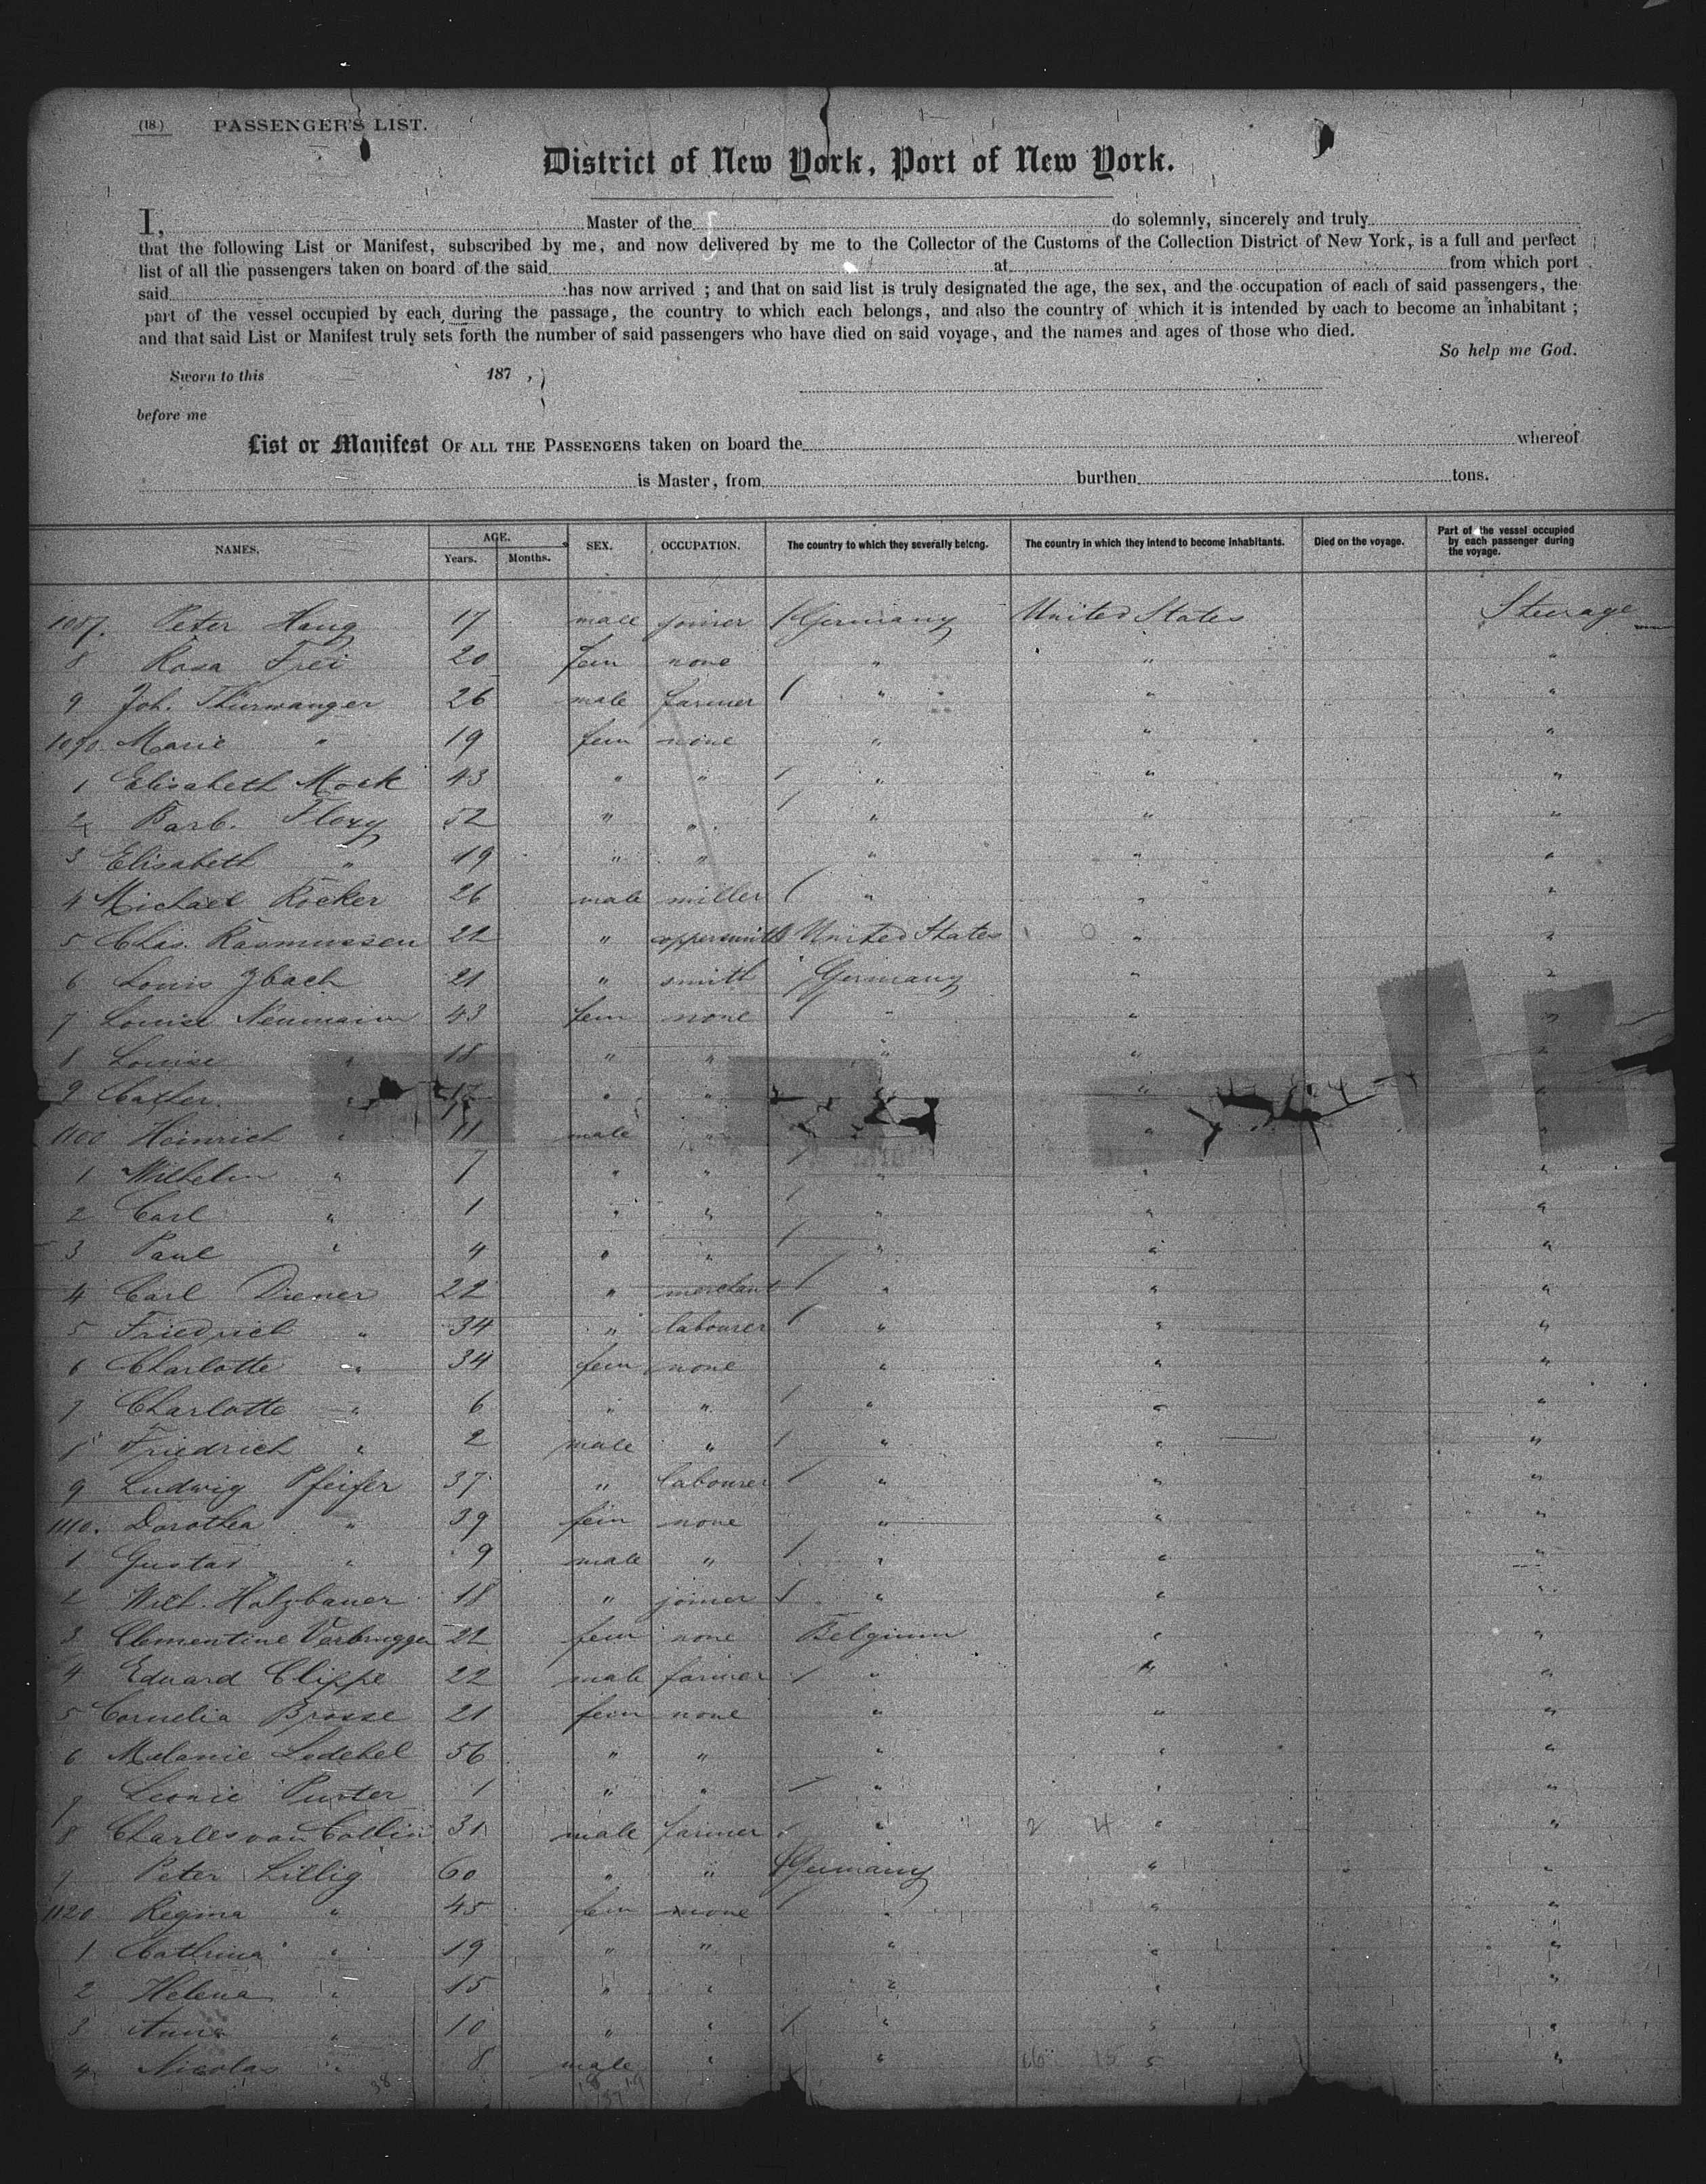 (18.) PASSENGER'S LIST.
District of New York, Port of New York.
I, Master of the do solemnly, sincerely and truly
that the following List or Manifest, subscribed by me, and now delivered by me to the Collector of the Customs of the Collection District of New York, is a full and perfect
list of all the passengers taken on board of the said at from which port
said has now arrived ; and that on said list is truly designated the age, the sex, and the occupation of each of said passengers, the
part of the vessel occupied by each during the passage, the country to which each belongs, and also the country of which it is intended by each to become an inhabitant ;
and that said List or Manifest truly sets forth the number of said passengers who have died on said voyage, and the names and ages of those who died.
So help me God.
Sworn to this 187 ,
before me
List or Manifest OF ALL THE PASSENGERS taken on board the whereof
is Master, from burthen tons.
NAMES. AGE. Years. Months. SEX. OCCUPATION. The country to which they severally belong. The country in which they intend to become inhabitants. Died on the voyage. Part of the vessel occupied by each passenger during the voyage.
1087. Peter Haug 17 male joiner Germany United States Steerage
8 Rosa Frei 20 fem none " " "
9 Joh. Thürwanger 26 male farmer " " "
1090. Marie " 19 fem none " " "
1 Elisabeth Mock 43 " " " " "
2 Barb. Flory 52 " " " " "
3 Elisabeth " 19 " " " " "
4 Michael Röcker 26 male miller " " "
5 Chas. Rasmussen 22 " coppersmith United States " "
6 Louis Ibach 21 " smith Germany " "
7 Louise Neumann 43 fem none " " "
8 Louise " 18 " " " " "
9 Cather. " 17 " " " "
1100 Heinrich " 11 male " " "
1 Wilhelm " 7 " " " " "
2 Carl " 1 " " " " "
3 Paul " 4 " " " " "
4 Carl Diener 22 " merchant " " "
5 Friedrich " 34 " labourer " " "
6 Charlotte " 34 fem none " " "
7 Charlotte " 6 " " " " "
8 Friedrich " 2 male " " " "
9 Ludwig Pfeifer 37 " labourer " " "
1110. Dorothea " 39 fem none " " "
1 Gustav " 9 male " " " "
2 Wilh. Holzbauer 18 " joiner " " "
3 Clementine Verbruggen 22 fem none Belgium " "
4 Eduard Clippe 22 male farmer " " "
5 Cornelia Brosse 21 fem none " " "
6 Melanie Ledebel 56 " " " " "
7 Leonie 1 " " " " "
8 Charles van Collin 31 male farmer " 2 4 " "
9 Peter Lillig 60 " " Germany " "
1120 Regina " 45 fem none " " "
1 Cathrina " 19 " " " " "
2 Helena " 15 " " " " "
3 Anna " 10 " " " " "
4 Nicolas " 8 male " " " "
38